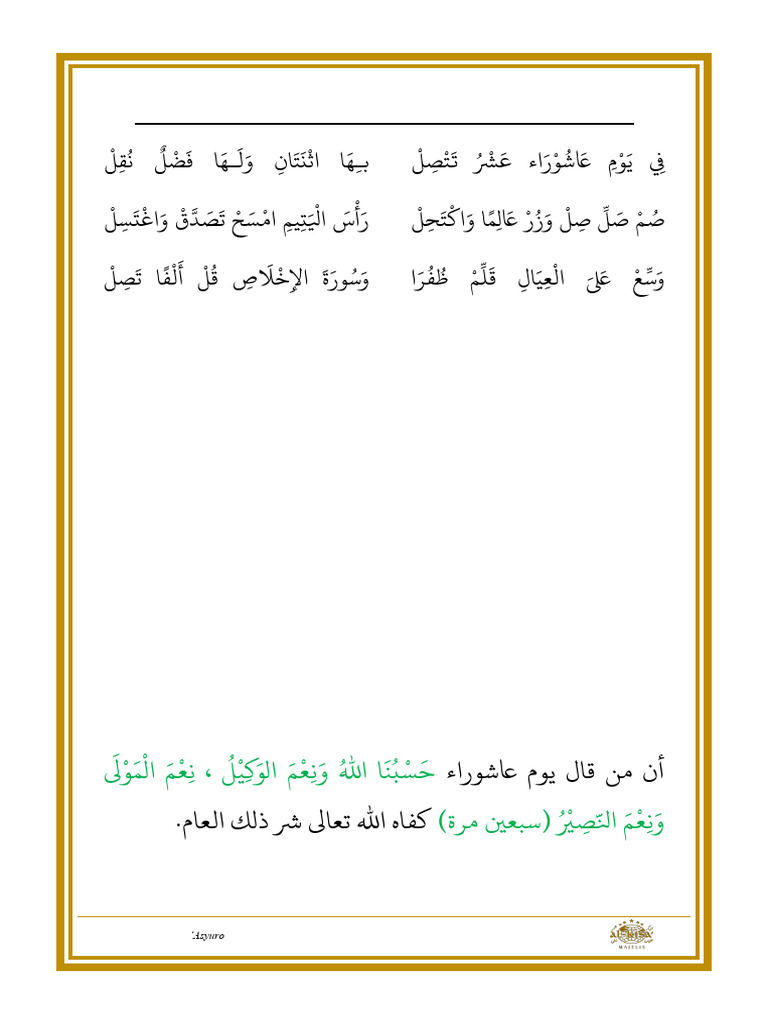 فِي يَوْمِ عَاشُوْرَاء عَشْرُ تَتَّصِلْ بِـهَا اثْنَتَانِ وَلَــهَا فَضْلٌ نُقِلْ
صُمْ صَلِّ صِلْ وَزُرْ عَالِمًا وَاكْتَحِلْ رَأْسَ الْيَتِيمِ امْسَحْ تَصَدَّقْ وَاغْتَسِلْ
وَسِّعْ عَلَى الْعِيَالِ قَلِّمْ ظُفُرَا وَسُورَةَ الإِخْلَاصِ قُلْ أَلْفًا تَصِلْ
أن من قال يوم عاشوراء حَسْبُنَا اللهُ وَنِعْمَ الوَكِيْلُ ، نِعْمَ الْمَوْلَى
وَنِعْمَ النّصِيْرُ (سبعين مرة) كفاه الله تعالى شر ذلك العام.
'Asyuro
AL-NISA'
MAJELIS